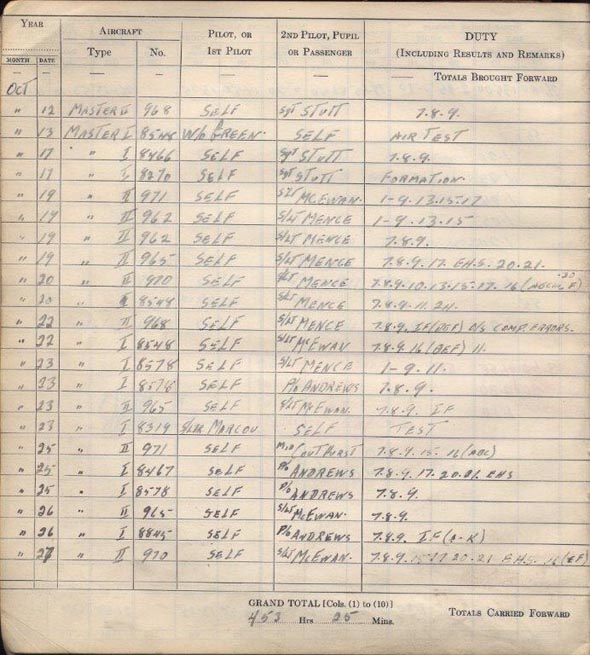 YEAR AIRCRAFT PILOT, OR 2ND PILOT, PUPIL DUTY
MONTH DATE Type No. 1ST PILOT OR PASSENGER (INCLUDING RESULTS AND REMARKS)
— — — — — — — TOTALS BROUGHT FORWARD
OCT
" 12 MASTER II 968 SELF SGT STOTT 7.8.9.
" 13 MASTER I 8548 W/O GREEN. SELF AIR TEST
" 17 " I 8466 SELF SGT STOTT 7.8.9.
" 17 " I 8270 SELF SGT STOTT FORMATION.
" 19 " II 971 SELF S/LT MCEWAN. 1-9.13.15.17
" 19 " II 962 SELF S/LT MENCE 1-9.13.15
" 19 " II 962 SELF S/LT MENCE 7.8.9.
" 19 " II 965 SELF S/LT MENCE 7.8.9.17. EHS. 20.21.
" 20 " II 970 SELF S/LT MENCE 7.8.9.10.13.15.17.16
" 20 " 8548 SELF S/LT MENCE 7.8.9.11.21.
" 22 " II 968 SELF S/LT MENCE 7.8.9. IF COMP. ERRORS.
" 22 " I 8548 SELF S/LT MCEWAN 7.8.9.16 11.
" 23 " I 8578 SELF S/LT MENCE 1-9.11.
" 23 " I 8578 SELF P/O ANDREWS 7.8.9.
" 23 " II 965 SELF S/LT MCEWAN. 7.8.9. IF
" 23 " I 8319 SELF TEST
" 25 " II 971 SELF 7.8.9.15.16
" 25 " I 8467 SELF P/O ANDREWS 7.8.9.17.20.21. EHS
" 25 " I 8578 SELF P/O ANDREWS 7.8.9.
" 26 " II 965 SELF S/LT MCEWAN. 7.8.9.
" 26 " I 8845 SELF P/O ANDREWS 7.8.9. IF
" 27 " II 970 SELF S/LT MCEWAN. 7.8.9.15.17.20.21 EHS.
GRAND TOTAL [Cols. (1) to (10)]
Hrs 25 Mins. TOTALS CARRIED FORWARD